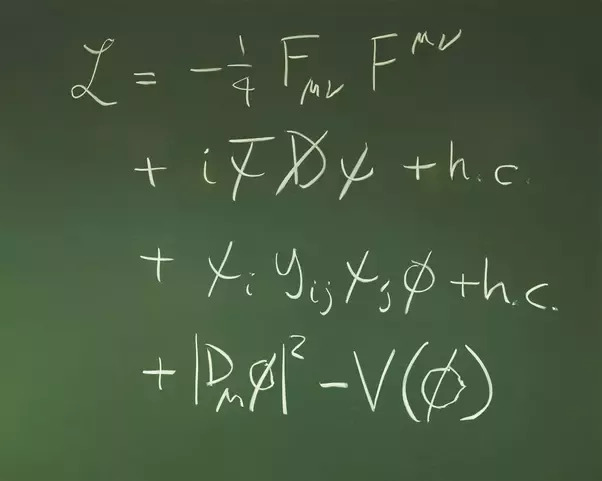 ℒ = -¼ F_μν F^μν
+ i ψ̄ D̸ ψ + h.c.
+ ψ_i y_ij ψ_j ϕ + h.c.
+ |D_μ ϕ|² - V(ϕ)